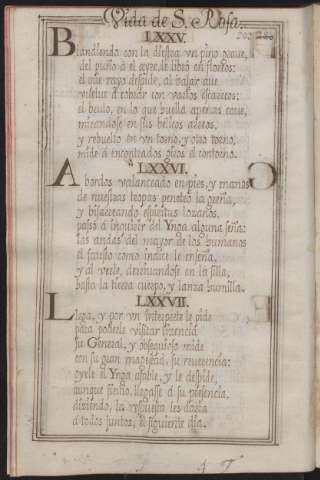 Vida de S. Rosa.
LXXV.
Blandiendo con la diestra un pino
del puño à el ayre, de libró en floreos:
el que rayo despide, al bajar que
vuelve à cobrar con varios escarceos:
el bruto, en lo que huella apenas cave,
mirandose en sus belicos arreos,
y rebuelto en un torno, y otro torno,
mide à encontrados giros el contorno.
LXXVI.
A bordos valanceado en pies, y manos
de nuestras tropas penetró la greña,
y bisarreando espiritus lozanos,
passó à inquirir del Ynga alguna seña:
las andas del mayor de los humanos
el fausto como indice le enseña,
y al verle, derribandose en la silla,
hasta la tierra cuerpo, y lanza humilla.
LXXVII.
Llega, y por un Interprete le pide
para poderle visitar licencia
su General, y obsequioso mide
con su gran magestad, su reverencia:
oyele el Ynga afable, y le despide,
aunque sintio, llegasse à su presencia,
diziendo, la respuesta les daria
à todos juntos, el siguiente dia.